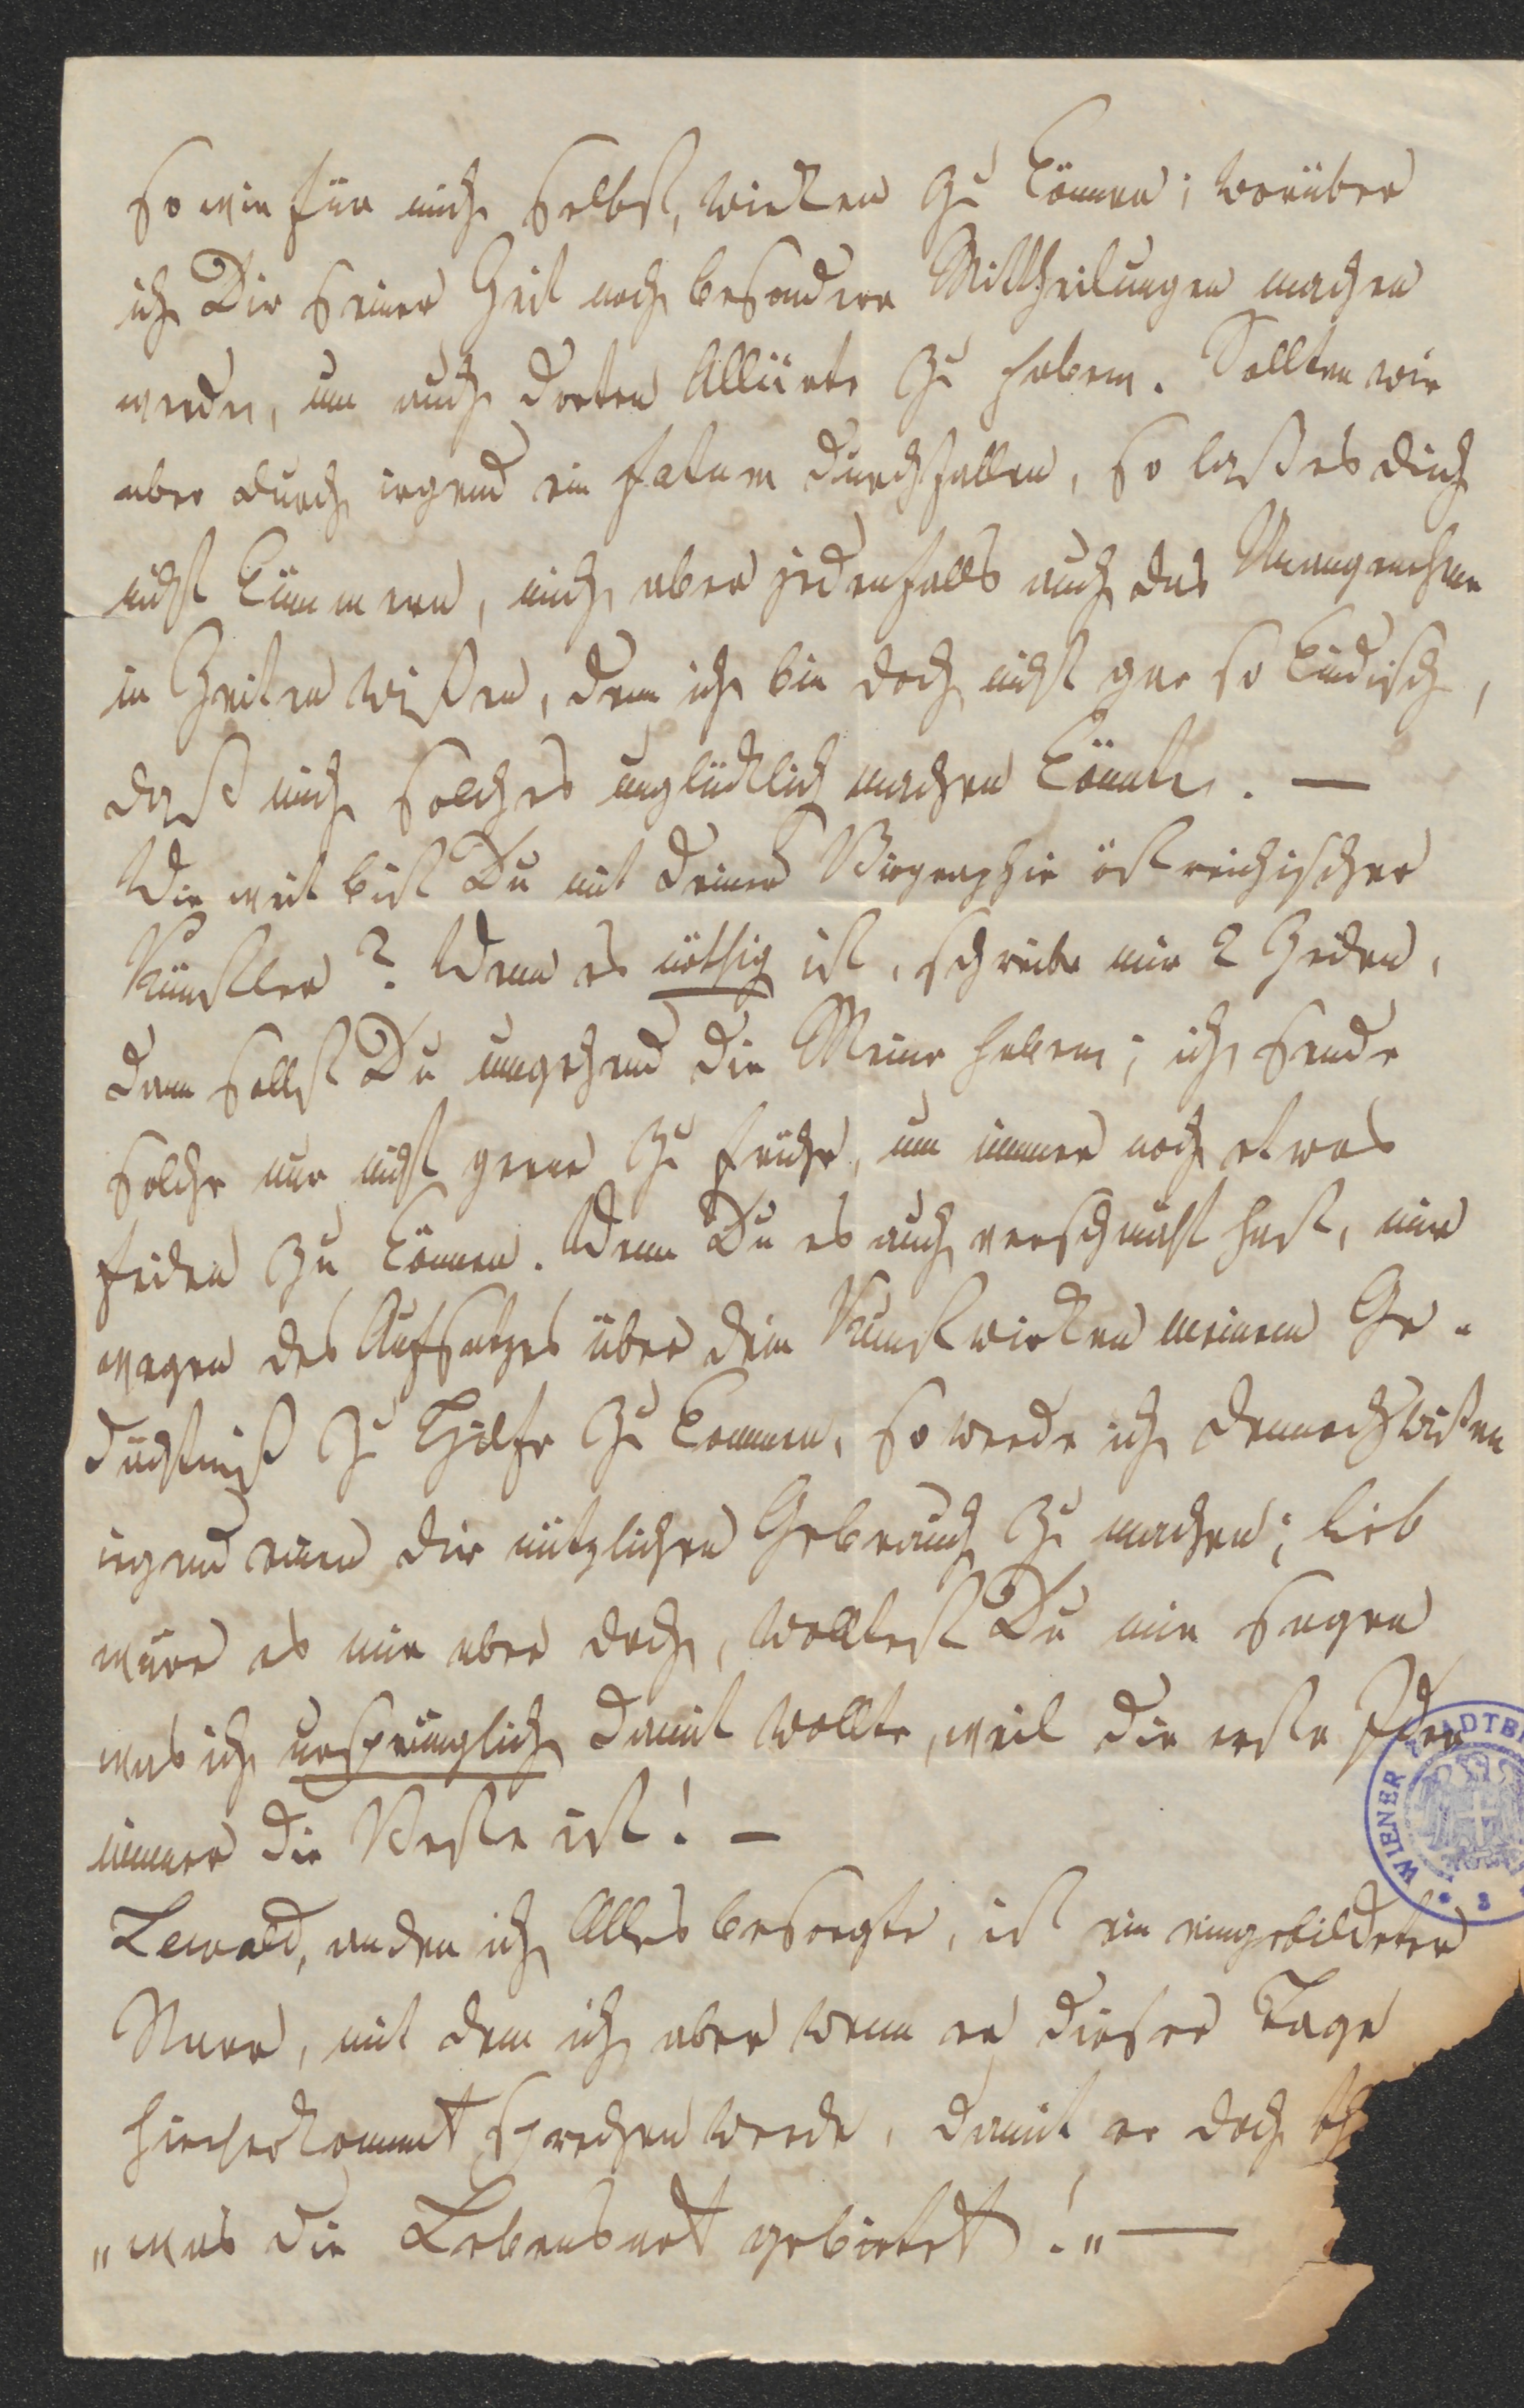 so wie für mich selbst, wirken zu können; worüber
ich Dir seiner Zeit noch besondere Mittheilungen machen
werde, um auch dorten Alliirte zu haben. Sollten wir
aber durch irgend ein fatum durchfallen, so laß es dich
nicht kümmern, mich aber jedenfalls auch das Unangenehme
in Zeiten wißen, denn ich bin doch nicht gar so kindisch,
daß mich solches unglücklich machen könnte. —
Wie weit bist Du mit deiner Biographie östreichischer
Künstler? Wenn es nöthig ist, schreibe mir 2 Zeilen,
dann sollst Du umgehend die Meine haben; ich sende
solche nur nicht gerne zu frühe, um immer noch etwas
feilen zu können. Wenn Du es auch verschmäht hast, mir
wegen des Aufsatzes über dein Kunstwirken meinem Ge-
dächtniß zu Hilfe zu kommen, so werde ich dennoch wißen
irgend einen dir nützlichen Gebrauch zu machen; lieb
wäre es mir aber doch, wolltest Du mir sagen
was ich ursprünglich damit wollte, weil die erste Idee
immer die Beste ist! —
Lewald, an den ich Alles besorgte, ist ein eingebildeter
Narr, mit dem ich aber wenn er dieser Tage
hierherkommt sprechen werde, damit er doch th
"was die Lebensart gebietet!" —
WIENER STADTBI